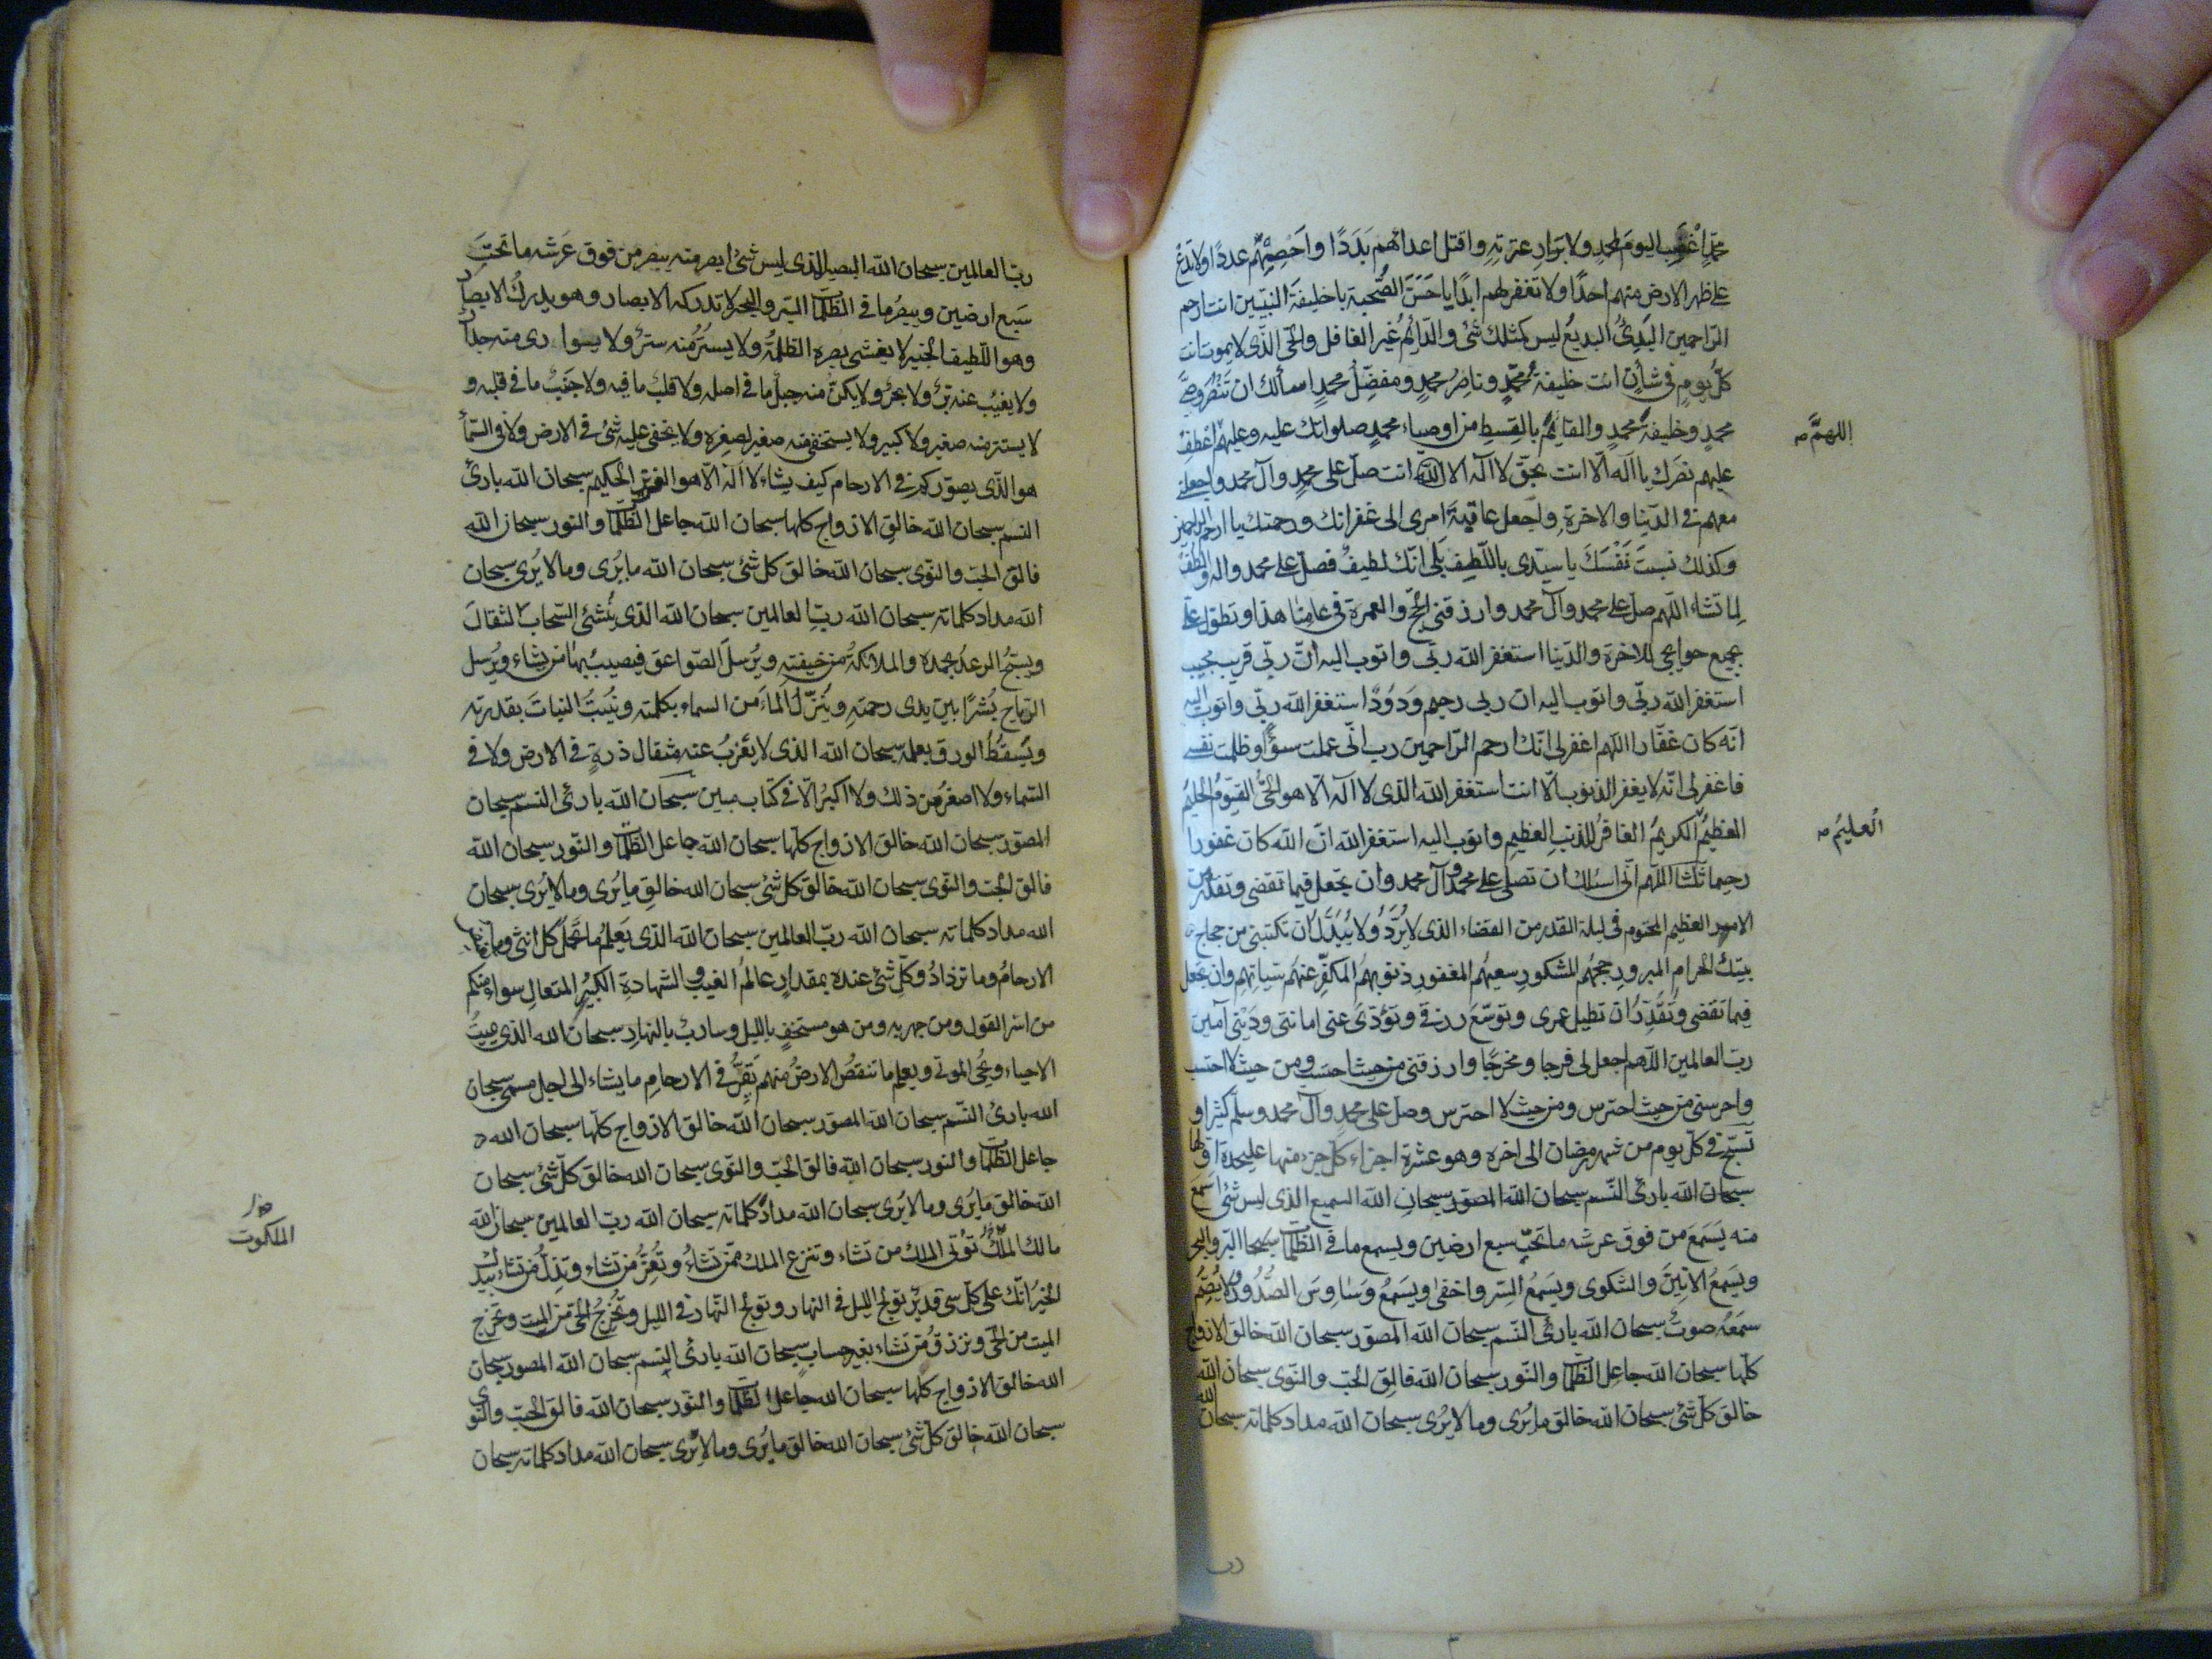 محمد اغضب اليوم لمحمد ولابرار عترته واقتل اعدائهم بَدَدًا واَحْصِهِم عددًا ولا تدع
على ظهر الارض منهم احدًا ولا تغفر لهم ابدًا يا حَسَنَ الصُّحبة يا خليفة النبيّين انت ارحم
الرّاحمين البَدِیُّ البديعُ ليس كمثلك شئ والدّائمُ غير الغافل والحیّ الذّی لا يموت انت
كلّ يومٍ فی شأنٍ انت خليفة محمّدٍ وناصِرُ محمدٍ ومفضِّلُ محمدٍ اسألك ان تَنْصُرَ وصیَّ
محمدٍ وخليفةَ محمدٍ والقائِمَ بالقِسطِ من اوصياء محمدٍ صلواتك عليه وعليهم اعطف
اللهمَّ
عليهم نصرَك يا لا اله الّا انت بحقّ لا اله الا الله انت صلّ على محمدٍ وآل محمد واجعلنی
معهم فی الدّنيا والاخرة واجعل عاقبةَ امری الى غفرانك ورحمتك يا ارحم الراحمين
وكذلك نسبتَ نَفْسَكَ يا سيّدی باللّطيف بَلى انّك لطيفٌ فصلّ على محمد واله والطُف
لما تشاء اللّهم صلّ على محمد وآل محمد وارزقنی الحجّ والعمرة فی عامنا هذا وتطوّل علىّ
بجميع حوايجی للاخرة والدّنيا استغفر الله ربّی واتوب اليه انّ ربّی قريب مجيب
استغفر الله ربّی واتوب اليه ان ربی رحيم وَدُودٌ استغفر الله ربّی واتوب اليه
انّه كان غفّارا اللهم اغفر لی انّك ارحم الرّاحمين رب انّی عملت سوءً وظلمت نفسی
فاغفر لی انّه لا يغفر الذنوب الّا انت استغفر الله الذی لا اله الّا هو الحیُّ القيّومُ الحليمُ
العظيمُ الكريمُ الغافرُ للذنبِ العظيمِ واتوب اليه استغفر الله انّ الله كان غفورا
العليمُ
رحيما ثلثا اللّهم انّی اسئلك ان تصلی على محمد وآل محمد وان تجعل فيما تقضی وتقدّر من
الامر العظيم المحتوم فی ليلة القدر من القضاء الذی لا يُرَدُّ ولا يُبَدَّلُ ان تكتبنی من حجاج
بيتك الحرام المبرورِ حجّهُم المشكورِ سعيهُم المغفورِ ذنوبهُم المكفَّرِ عنهُم سيّاتهم وان تجعل
فيما تقضی وتُقَدِّرُ ان تطيل عمری وتوسّعَ رزقی وتؤدّیَ عنی امانتی ودَيْنی آمين
ربّ العالمين اللّهم اجعل لی فرجا ومخرجًا وارزقنی من حيث احتسب ومن حيث لا احتسب
واحرسنی من حيث احترس ومن حيث لا احترس وصل على محمدٍ وآل محمد وسلّم كثيرًا و
تُسبّح فی كلّ يوم من شهر رمضان الى اخره وهو عشرة اجزاء كلّ جزء منها عليحدة اوّلها
سبحان الله بارئ النّسم سبحان الله المصوّر سبحان الله السميع الذی ليس شئ اسمع
منه يَسَمَع من فوق عرشه ما تحت سبع ارضين ويسمع ما فی الظّلمات البرّ والبحر
ويَسَمعُ الانينَ والشكوى ويَسَمعُ السِرّ واخفى ويَسَمعُ وَسَاوِسَ الصُّدُورِ ولا يُصِمُّ
سَمْعَه صوتٌ سبحان الله بارئ النّسم سبحان الله المصوّر سبحان الله خالق الازواج
كلّها سبحان الله جاعلِ الظّلمات والنّور سبحان الله فالقِ الحبّ والنّوى سبحان الله
خالق كلّ شئ سبحان الله خالق ما يُرى وما لا يُرى سبحان الله مداد كلماته سبحان الله
ربّ العالمين سبحان الله البصير الذی ليس شئ ابصر منه يبصر من فوق عَرشه ما تحتَ
سَبع ارضين ويبصرُ ما فی الظّلمات البّر والبحر لا تدركه الابصار وهو يدركُ الابصار
وهو اللّطيف الخبير لا يغشى بصره الظلمةُ ولا يسترُ منه سترٌ ولا يوارى منه جدار
ولا يغيبُ عنه برٌّ ولا بحرٌ ولا يكنّ منه جبلٌ ما فی اصله ولا قلبٌ ما فيه ولا جَنْبٌ ما فی قلبه و
لا يستتر منه صغير ولا كبير ولا يستخفی منه صغير لصِغَرِه ولا يخفى عليه شئ فی الارض ولا فی السّماء
هو الذّی يصوّركم فی الارحام كيف يشاء لا اله الّا هو العزيز الحكيم سبحان الله بارئ
النسم سبحان الله خالق الازواج كلها سبحان الله جاعل الظّلمات والنور سبحان الله
فالق الحبّ والنّوى سبحان الله خالق كل شئ سبحان الله ما يُرى وما لا يُرى سبحان
الله مداد كلماته سبحان الله ربّ العالمين سبحان الله الذّی يُنشئ السّحابَ الثقالَ
ويسبّحُ الرعدُ بحمده والملائكةُ من خيفتهِ ويُرسلُ الصّواعقَ فيصيبُ بها من يشاء ويُرسل
الرّياح بُشرًا بين يدی رحمتهِ ويُنزّلُ الماءَ من السماء بكلمته ويُنبتُ النباتَ بقدرته
ويَسقُطُ الورق بعلمه سبحان الله الذی لا يَعْزبُ عنه مثقال ذرةٍ فی الارض ولا فی
السّماء ولا اصغرُ من ذلك ولا اكبرُ الّا فی كتابٍ مبين سبحان الله بارئ النسم سبحان
المصوّر سبحان الله خالق الازواج كلّها سبحان الله جاعل الظّلمات والنّور سبحان الله
فالق الحبّ والنّوى سبحان الله خالق كل شئ سبحان الله خالقِ ما يُرى وما لا يُرى سبحان
الله مداد كلماته سبحان الله ربّ العالمين سبحان الله الذّی يَعلمُ ما تَحملُ كل انثى وما تغيض
الارحامُ وما تزدادُ وكلّ شئ عنده بمقدارٍ عالمُ الغيب والشهادةِ الكبيرُ المتعالِ سواءٌ منكم
من اسرّ القول ومن جهر به ومن هو مستخفٍ بالليل وساربٌ بالنهارِ سبحان الله الذی يميتُ
الاحياء ويحیُ الموتى ويعلم ما تنقصُ الارضُ منهم ويقرُّ فی الارحامِ ما يشاء الى اجل مسمى سبحان
الله بارئ النّسم سبحان الله المصوّر سبحان الله خالق الازواج كلّها سبحان الله
جاعل الظّلمات والنور سبحان اللهِ فالق الحبّ والنّوى سبحان الله خالق كلّ شئ سبحان
الله خالق ما يُرى وما لا يُرى سبحان الله مدادَ كلماته سبحان الله ربّ العالمين سبحان الله
الملكوت
مالك المُلكِ تُؤتى الملك من تشاء وتنزع الملك ممّن تشاءُ وتُعِزُّ من تشاء وتذلُّ من تشاء بيدك
الخيرُ انّك على كل شئ قديرٌ تولج الليل فی النهار وتولج النّهار فی الليل وتُخرجُ الحیّ من الميت وتخرج
الميت من الحیّ وترزقُ من تشاء بغير حساب سبحان الله بارئ النّسم سبحان الله المصور سبحان
الله خالق الازواج كلها سبحان الله جاعل الظّلمات والنّور سبحان الله فالق الحبّ والنّوى
سبحان الله خالق كلّ شئ سبحان الله خالق ما يُرى وما لا يُرى سبحان الله مداد كلماته سبحان